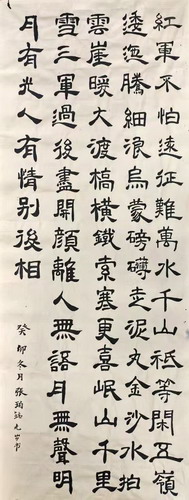 紅軍不怕遠征難萬水千山祗等閑五嶺
逶迤騰細浪烏蒙磅礴走泥丸金沙水拍
雲崖暖大渡橋橫鐵索寒更喜岷山千里
雪三軍過後盡開顏離人無語月無聲明
月有光人有情别後相
癸卯冬月張珀九岁书